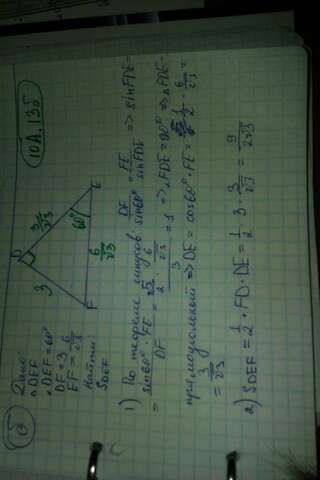 5
10А.135
Дано:
△DEF
∠DEF=60°
DF=3
EF=6/√3
Найти:
SDEF
D
3
3/√3
60°
F
6/√3
E
1) По теореме синусов: DF/sin60° = FE/sinFDE => sinFDE=
= sin60°·FE/DF = √3/2 · 6/√3 / 3 = 1 => ∠FDE=90° => △FDE-
прямоугольный => DE = cos60°·FE = 1/2 · 6/√3 =
= 3/√3
2) SDEF = 1/2 · FD · DE = 1/2 3 · 3/√3 = 9/2√3